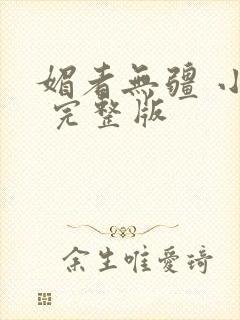 媚者無疆 小
完整版
余生唯愛琦